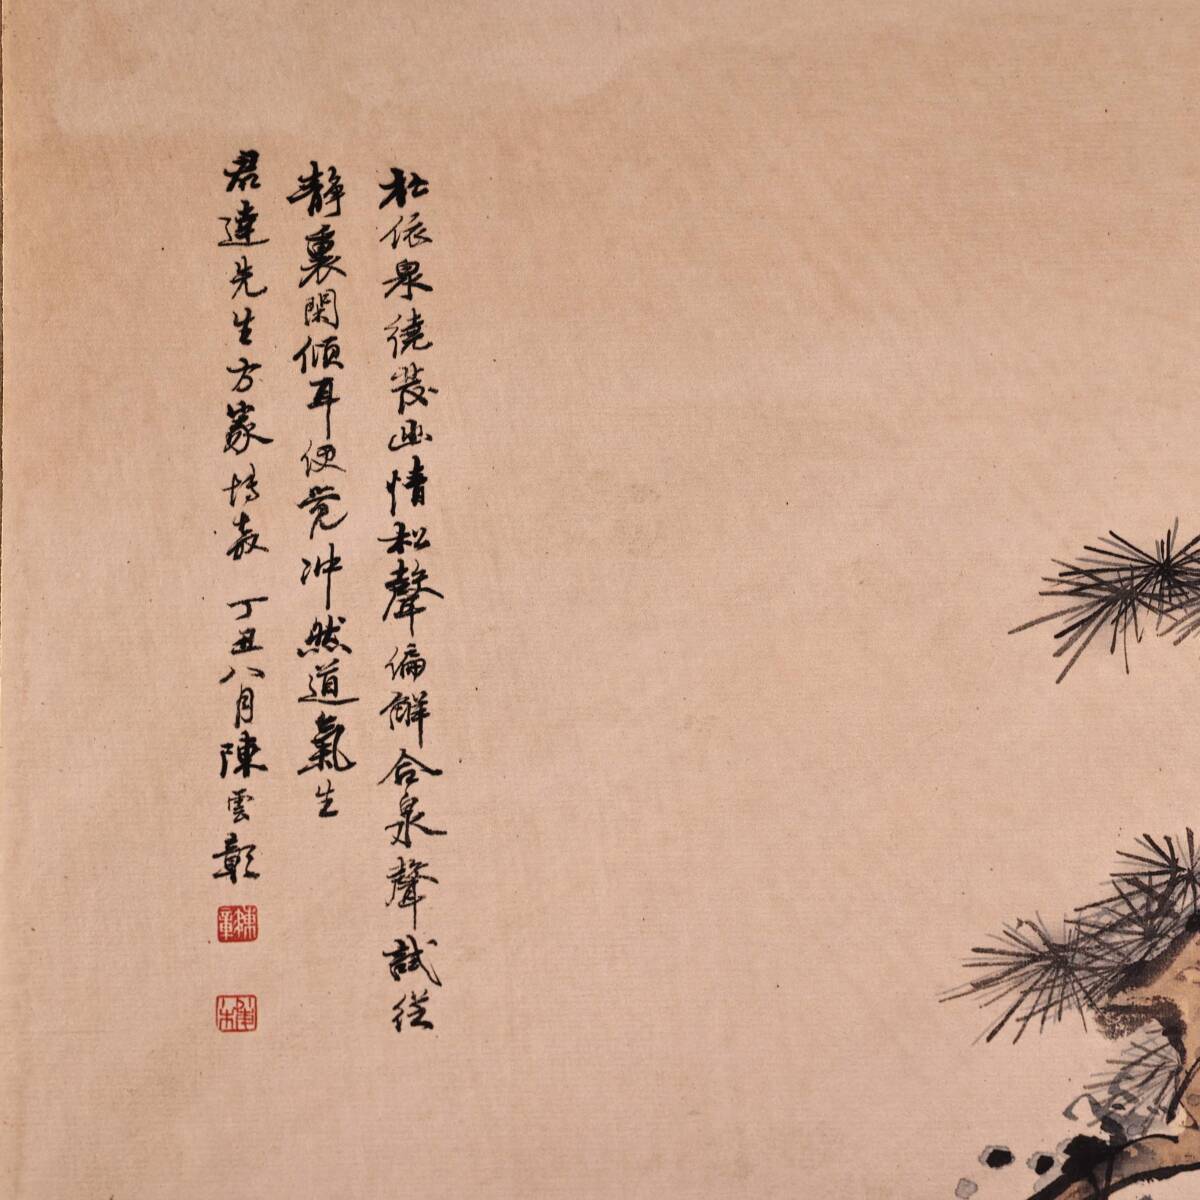 松依泉繞發幽情松聲偏解合泉聲試從
靜裏閑傾耳便覺冲然道氣生
君達先生方家博教 丁丑八月陳雲彰